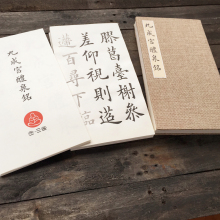 九成宮醴泉銘
膠葛臺榭參
差仰視則迢
遰百尋下臨
九成宮醴泉銘